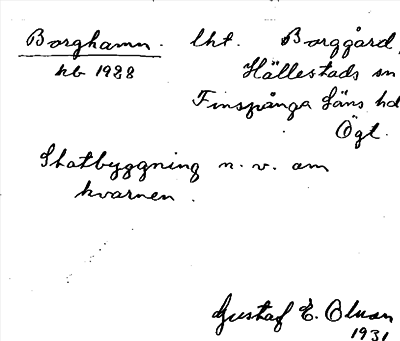 Borghamn. lht. Borggård,
kb 1928 Hällestads sn
Finspånga läns hd
Ögl.
Statbyggning n. v. om
kvarnen.
Gustaf E. Olsson
1931